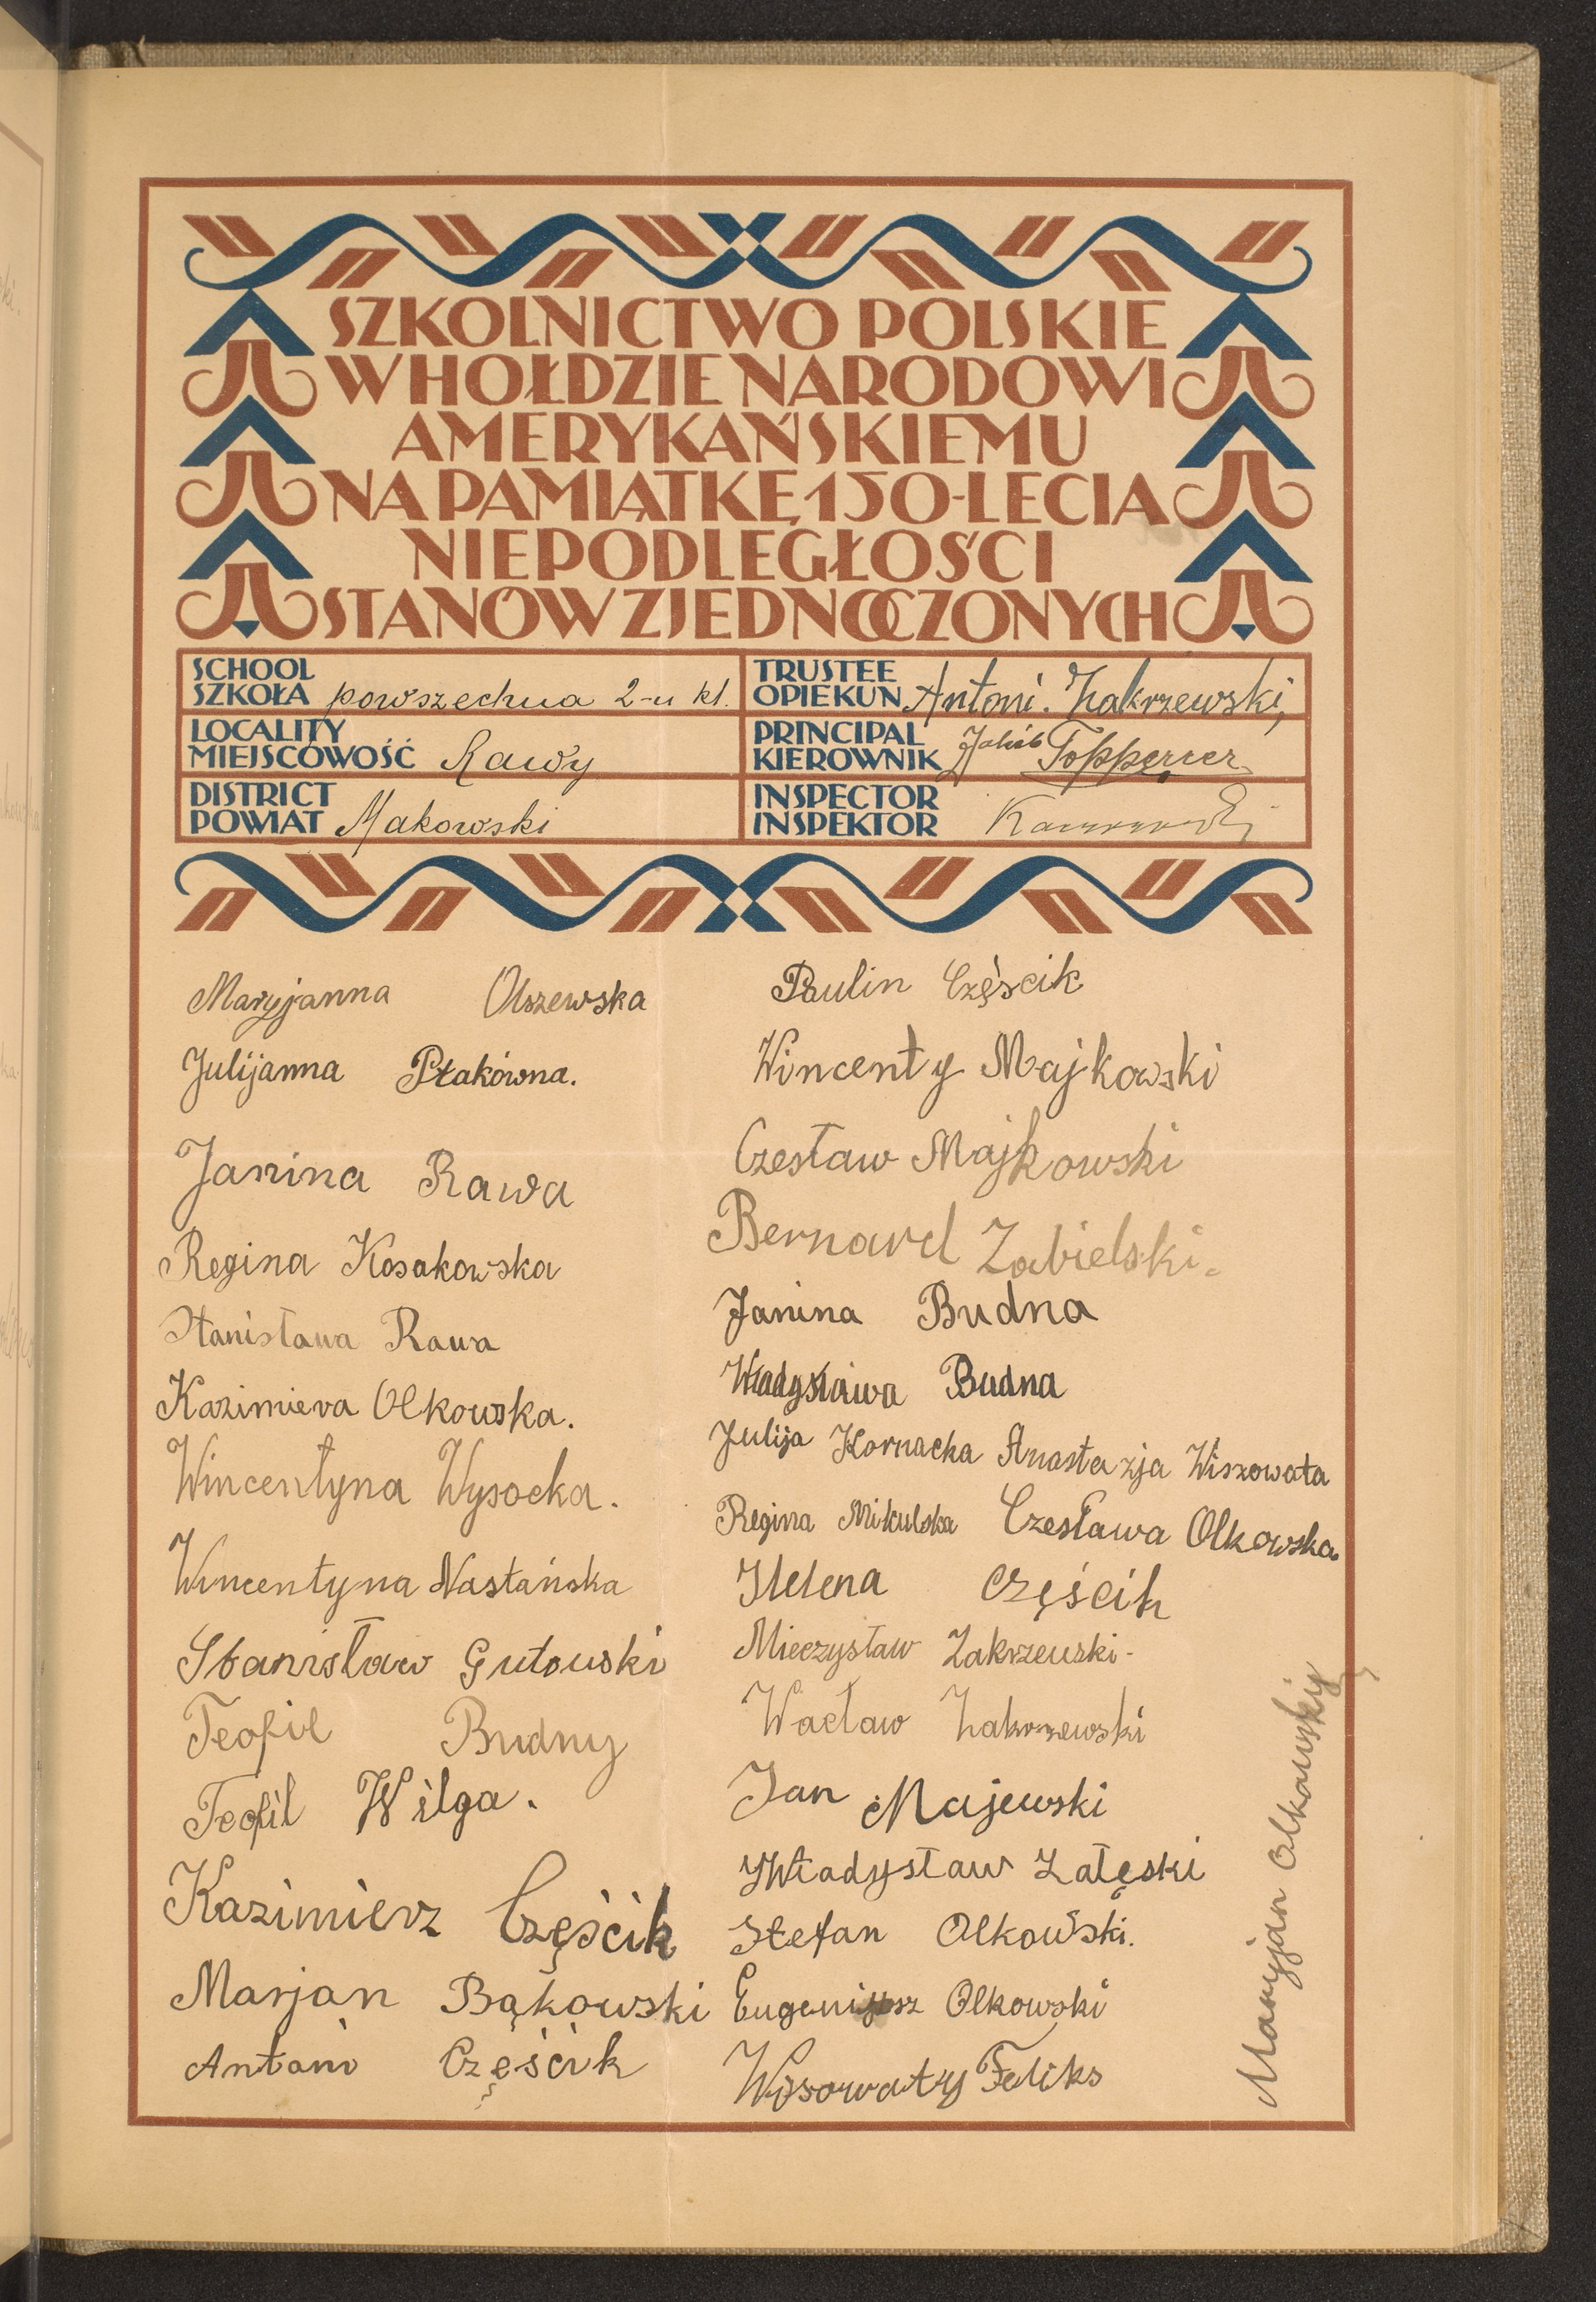 SZKOLNICTWO POLSKIE
W HOŁDZIE NARODOWI
AMERYKAŃSKIEMU
NA PAMIĄTKĘ 150-LECIA
NIEPODLEGŁOŚCI
STANÓW ZJEDNOCZONYCH
SCHOOL
SZKOŁA powszechna 2-u kl.
TRUSTEE
OPIEKUN Antoni. Zakrzewski,
LOCALITY
MIEJSCOWOŚĆ Rawy
PRINCIPAL
KIEROWNIK Jakób Topperer
DISTRICT
POWIAT Makowski
INSPECTOR
INSPEKTOR
Maryjanna Olszewska
Julijanna Ptakówna.
Janina Rawa
Regina Kosakowska
Stanisława Rawa
Kazimiera Olkowska.
Wincentyna Wysocka.
Wincentyna Nastańska
Stanisław Gutowski
Teofil Budny
Teofil Wilga.
Kazimierz Częścik
Marjan Bąkowski
Antoni Częścik
Paulin Częścik
Wincenty Majkowski
Czesław Majkowski
Bernard Zabielski.
Janina Budna
Władysława Budna
Julija Kornacka Anastazja Wiszowata
Regina Mikulska Czesława Olkowska
Helena Częścik
Mieczysław Zakrzewski-
Wacław Zakrzewski
Jan Majewski
Władysław Załęski
Stefan Olkowski.
Eugenijusz Olkowski
Wysowaty Feliks
Maryjan Olkowskiy